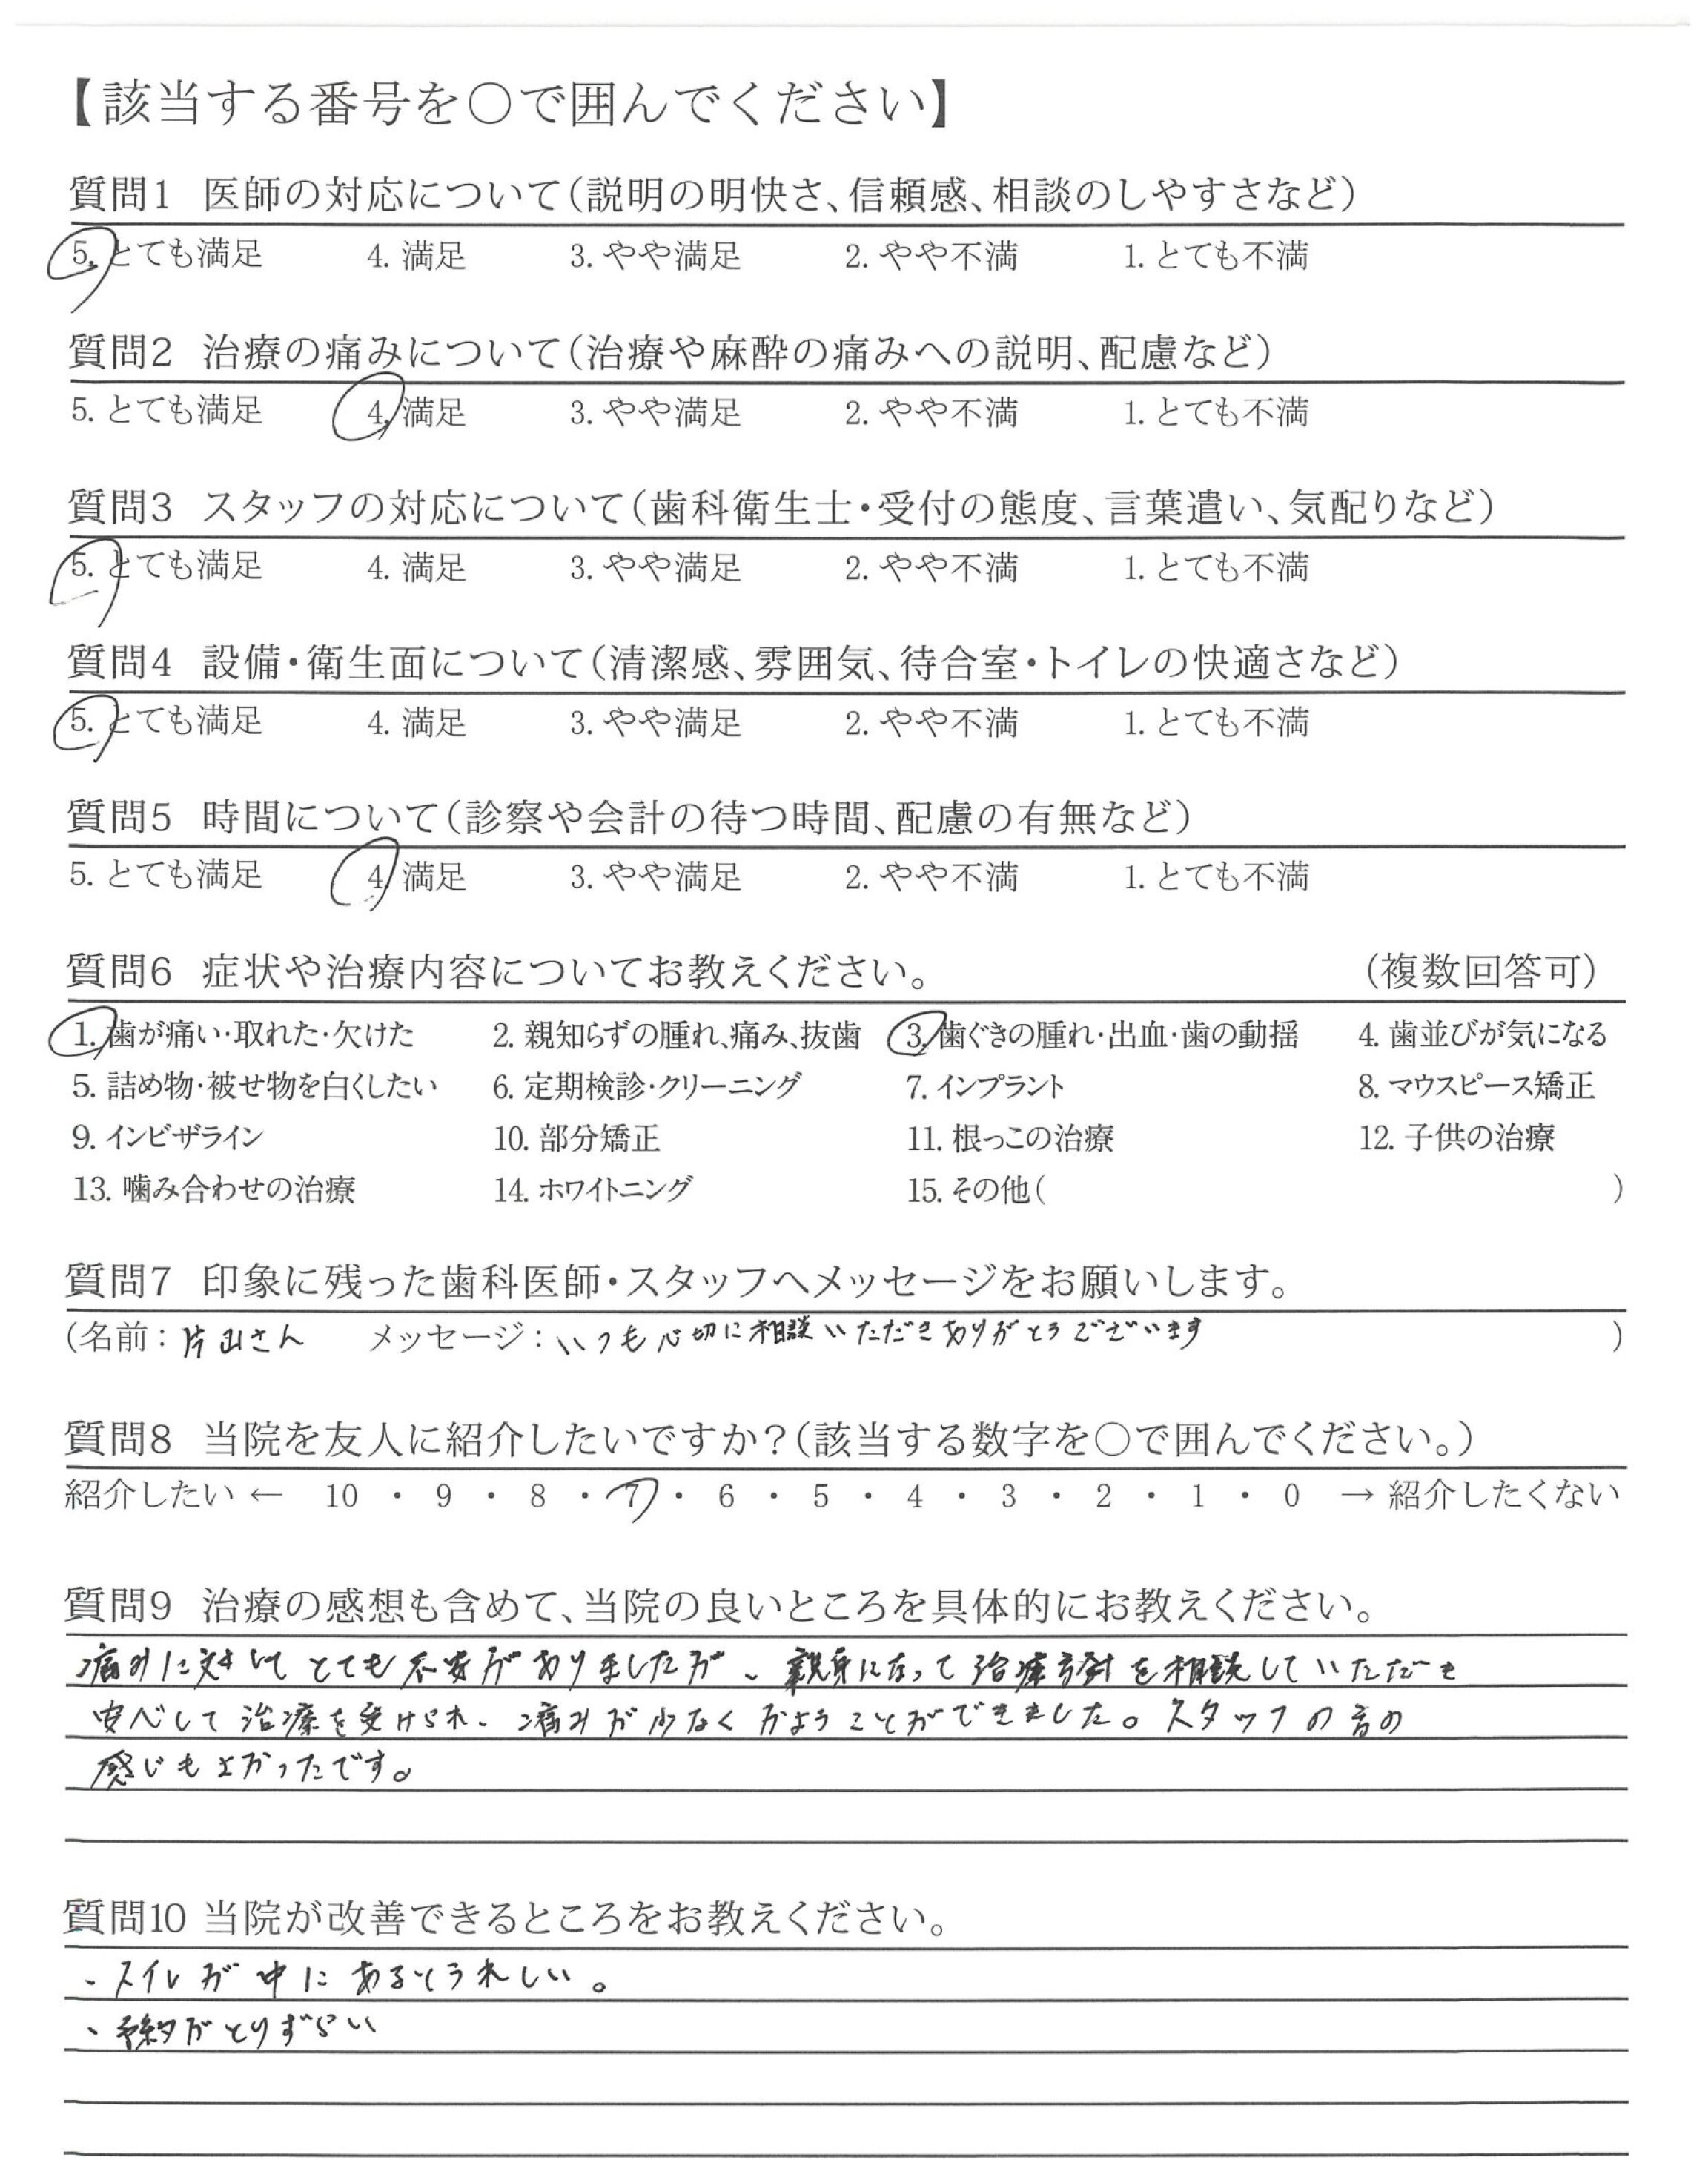 【該当する番号を〇で囲んでください】
質問1 医師の対応について(説明の明快さ、信頼感、相談のしやすさなど)
5. とても満足 4. 満足 3. やや満足 2. やや不満 1. とても不満
質問2 治療の痛みについて(治療や麻酔の痛みへの説明、配慮など)
5. とても満足 4. 満足 3. やや満足 2. やや不満 1. とても不満
質問3 スタッフの対応について(歯科衛生士・受付の態度、言葉遣い、気配りなど)
5. とても満足 4. 満足 3. やや満足 2. やや不満 1. とても不満
質問4 設備・衛生面について(清潔感、雰囲気、待合室・トイレの快適さなど)
5. とても満足 4. 満足 3. やや満足 2. やや不満 1. とても不満
質問5 時間について(診察や会計の待つ時間、配慮の有無など)
5. とても満足 4. 満足 3. やや満足 2. やや不満 1. とても不満
質問6 症状や治療内容についてお教えください。 (複数回答可)
1. 歯が痛い・取れた・欠けた 2. 親知らずの腫れ、痛み、抜歯 3. 歯ぐきの腫れ・出血・歯の動揺 4. 歯並びが気になる
5. 詰め物・被せ物を白くしたい 6. 定期検診・クリーニング 7. インプラント 8. マウスピース矯正
9. インビザライン 10. 部分矯正 11. 根っこの治療 12. 子供の治療
13. 噛み合わせの治療 14. ホワイトニング 15. その他( )
質問7 印象に残った歯科医師・スタッフへメッセージをお願いします。
(名前:片山さん メッセージ:いつも心切に相談いただきありがとうございます )
質問8 当院を友人に紹介したいですか?(該当する数字を〇で囲んでください。)
紹介したい ← 10 ・ 9 ・ 8 ・ 7 ・ 6 ・ 5 ・ 4 ・ 3 ・ 2 ・ 1 ・ 0 → 紹介したくない
質問9 治療の感想も含めて、当院の良いところを具体的にお教えください。
痛みに対してとても不安がありましたが、親身になって治療方針を相談していただき
安心して治療を受けられ、痛みが少なくかようことができました。スタッフの方の
感じもよかったです。
質問10 当院が改善できるところをお教えください。
・トイレが中にあるとうれしい。
・予約がとりずらい